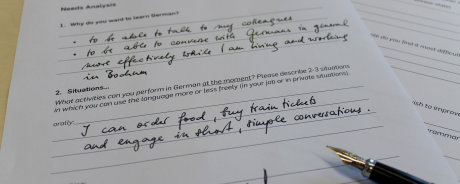 Needs Analysis
1. Why do you want to learn German?
• to be able to talk to my colleagues
• to be able to converse with Germans in general
more effectively while I am living and working
in Bochum
2. Situations...
What activities can you perform in German at the moment? Please describe 2-3 situations
in which you can use the language more or less freely (in your job or in private situations).
orally:
I can order food, buy train tickets
and engage in short, simple conversations.
do you find most difficult
ish to improve
grammar